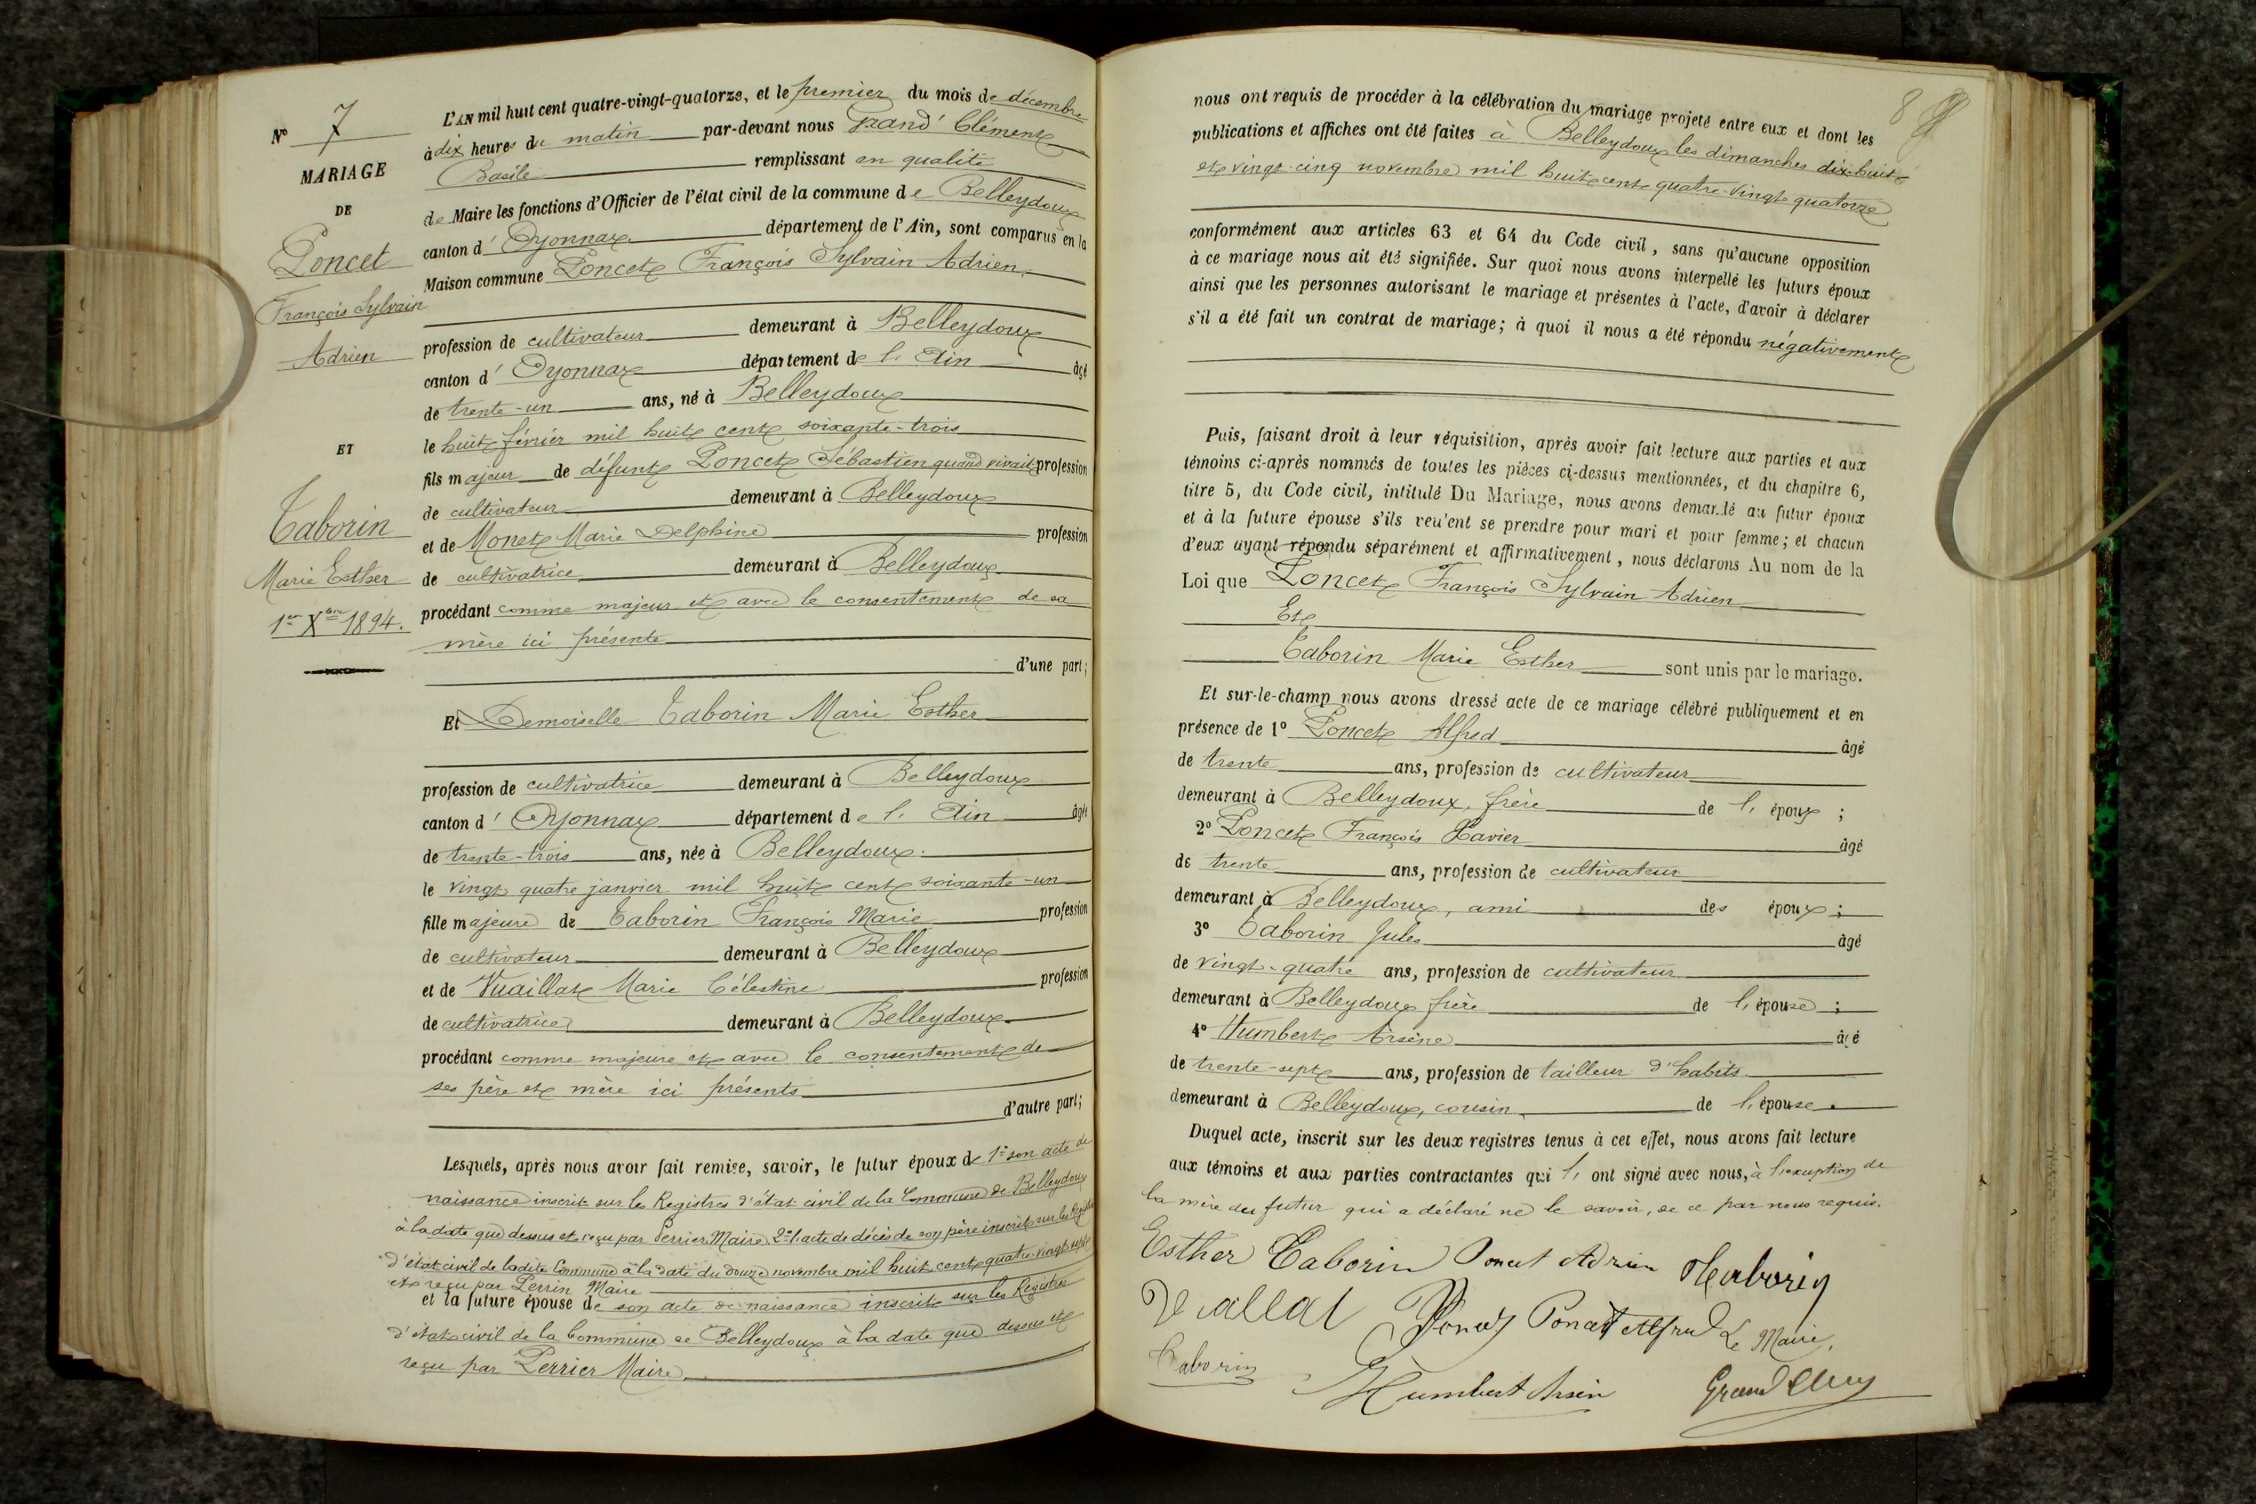 N° 7
MARIAGE
DE
Poncet
François Sylvain
Adrien
ET
Taborin
Marie Esther
1er Xbre 1894.
L'AN mil huit cent quatre-vingt-quatorze, et le premier du mois de décembre
à dix heures du matin par-devant nous Grand Clément
Basile remplissant en qualité
de Maire les fonctions d'Officier de l'état civil de la commune de Belleydoux
canton d' Oyonnax département de l'Ain, sont comparus en la
Maison commune Poncet François Sylvain Adrien
profession de cultivateur demeurant à Belleydoux
canton d' Oyonnax département de l'Ain âgé
de trente-un ans, né à Belleydoux
le huit février mil huit cent soixante-trois
fils majeur de défunt Poncet Sébastien quand vivait profession
de cultivateur demeurant à Belleydoux
et de Monet Marie Delphine profession
de cultivatrice demeurant à Belleydoux
procédant comme majeur et avec le consentement de sa
mère ici présente
d'une part;
Et Demoiselle Taborin Marie Esther
profession de cultivatrice demeurant à Belleydoux
canton d' Oyonnax département de l'Ain âgée
de trente-trois ans, née à Belleydoux
le vingt quatre janvier mil huit cent soixante-un
fille majeure de Taborin François Marie profession
de cultivateur demeurant à Belleydoux
et de Vuaillat Marie Célestine profession
de cultivatrice demeurant à Belleydoux
procédant comme majeure et avec le consentement de
ses père et mère ici présents
d'autre part;
Lesquels, après nous avoir fait remise, savoir, le futur époux de 1° son acte de
naissance inscrit sur les Registres d'état civil de la Commune de Belleydoux
à la date que dessus et reçu par Perrier Maire 2° l'acte de décès de son père inscrit sur les Registres
d'état civil de ladite Commune à la date du douze novembre mil huit cent quatre-vingt sept
et reçu par Perrin Maire
et la future épouse de son acte de naissance inscrit sur les Registres
d'état civil de la Commune de Belleydoux à la date que dessus et
reçu par Perrier Maire
8
nous ont requis de procéder à la célébration du mariage projeté entre eux et dont les
publications et affiches ont été faites à Belleydoux les dimanches dix-huit
et vingt-cinq novembre mil huit cent quatre-vingt quatorze
conformément aux articles 63 et 64 du Code civil, sans qu'aucune opposition
à ce mariage nous ait été signifiée. Sur quoi nous avons interpellé les futurs époux
ainsi que les personnes autorisant le mariage et présentes à l'acte, d'avoir à déclarer
s'il a été fait un contrat de mariage; à quoi il nous a été répondu négativement
Puis, faisant droit à leur réquisition, après avoir fait lecture aux parties et aux
témoins ci-après nommés de toutes les pièces ci-dessus mentionnées, et du chapitre 6,
titre 5, du Code civil, intitulé Du Mariage, nous avons demandé au futur époux
et à la future épouse s'ils veulent se prendre pour mari et pour femme; et chacun
d'eux ayant répondu séparément et affirmativement, nous déclarons Au nom de la
Loi que Poncet François Sylvain Adrien
Et
Taborin Marie Esther sont unis par le mariage.
Et sur-le-champ nous avons dressé acte de ce mariage célébré publiquement et en
présence de 1° Poncet Alfred âgé
de trente ans, profession de cultivateur
demeurant à Belleydoux, frère de l'époux ;
2° Poncet François Xavier âgé
de trente ans, profession de cultivateur
demeurant à Belleydoux, ami des époux ;
3° Taborin Jules âgé
de vingt-quatre ans, profession de cultivateur
demeurant à Belleydoux frère de l'épouse ;
4° Humbert Arsène âgé
de trente-sept ans, profession de tailleur d'habits
demeurant à Belleydoux, cousin de l'épouse.
Duquel acte, inscrit sur les deux registres tenus à cet effet, nous avons fait lecture
aux témoins et aux parties contractantes qui l'ont signé avec nous, à l'exception de
la mère du futur qui a déclaré ne le savoir, de ce par nous requis.
Esther Taborin Poncet Adrien Taborin
Vuallat Poncet Poncet Alfred Le Maire,
Taborin Humbert Arsène Grand Clément